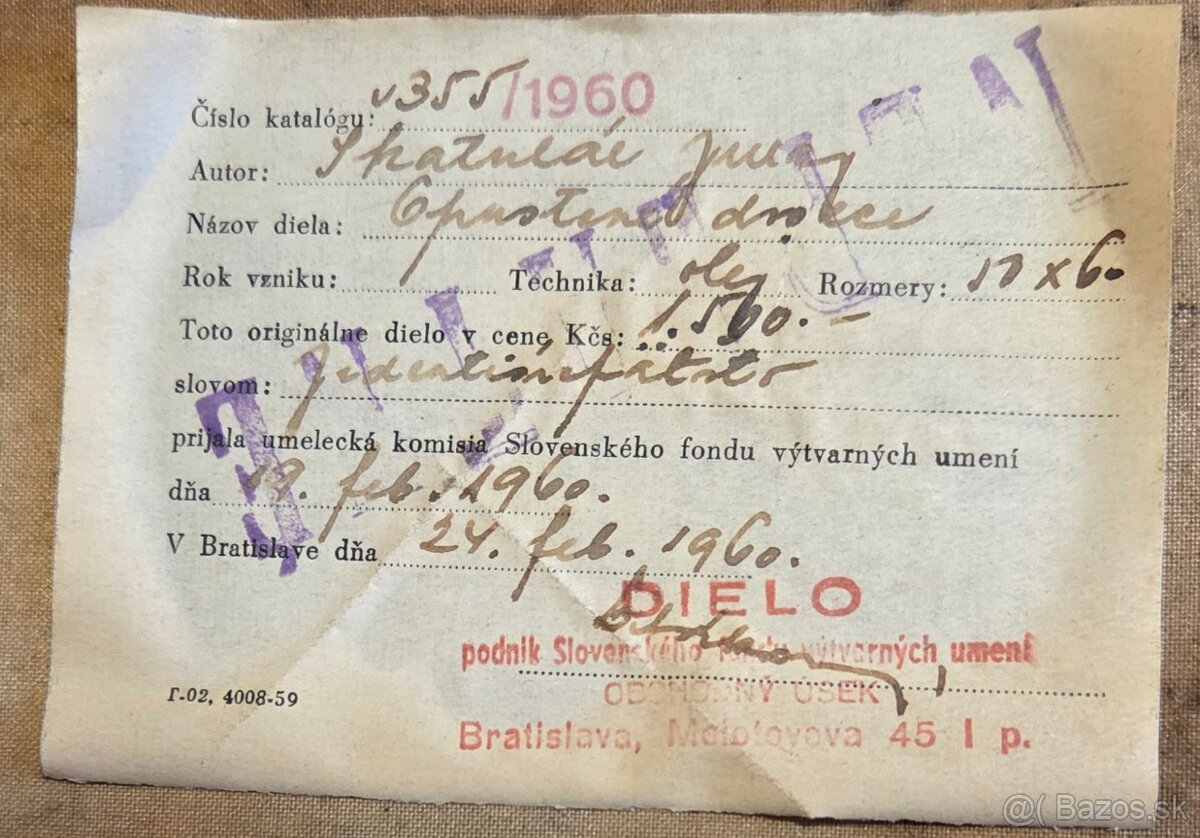 Číslo katalógu: v355/1960
Autor: Skatulár Juraj
Názov diela: Opustené
Rok vzniku: Technika: olej Rozmery: x60
Toto originálne dielo v cene Kčs: 1.500.-
slovom: Jedentisícpäťsto
prijala umelecká komisia Slovenského fondu výtvarných umení
dňa 19. feb. 1960.
V Bratislave dňa 24. feb. 1960.
DIELO
podnik Slovenského fondu výtvarných umení
OBCHODNÝ ÚSEK
Bratislava, Molotovova 45 I p.
T-02, 4008-59
@( Bazos.sk